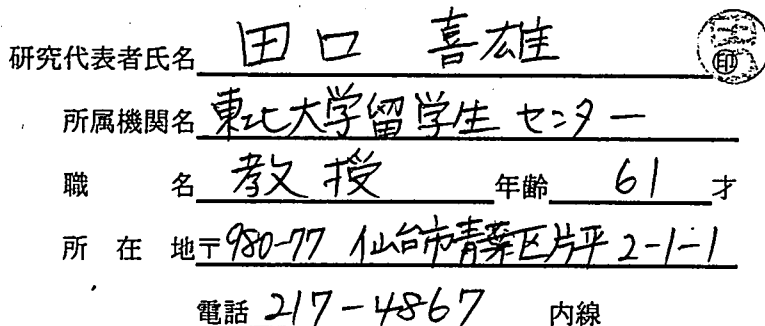 研究代表者氏名 田口 喜雄 印
所属機関名 東北大学留学生センター
職 名 教授 年齢 61 才
所 在 地 〒980-77 仙台市青葉区片平2-1-1
電話 217-4867 内線